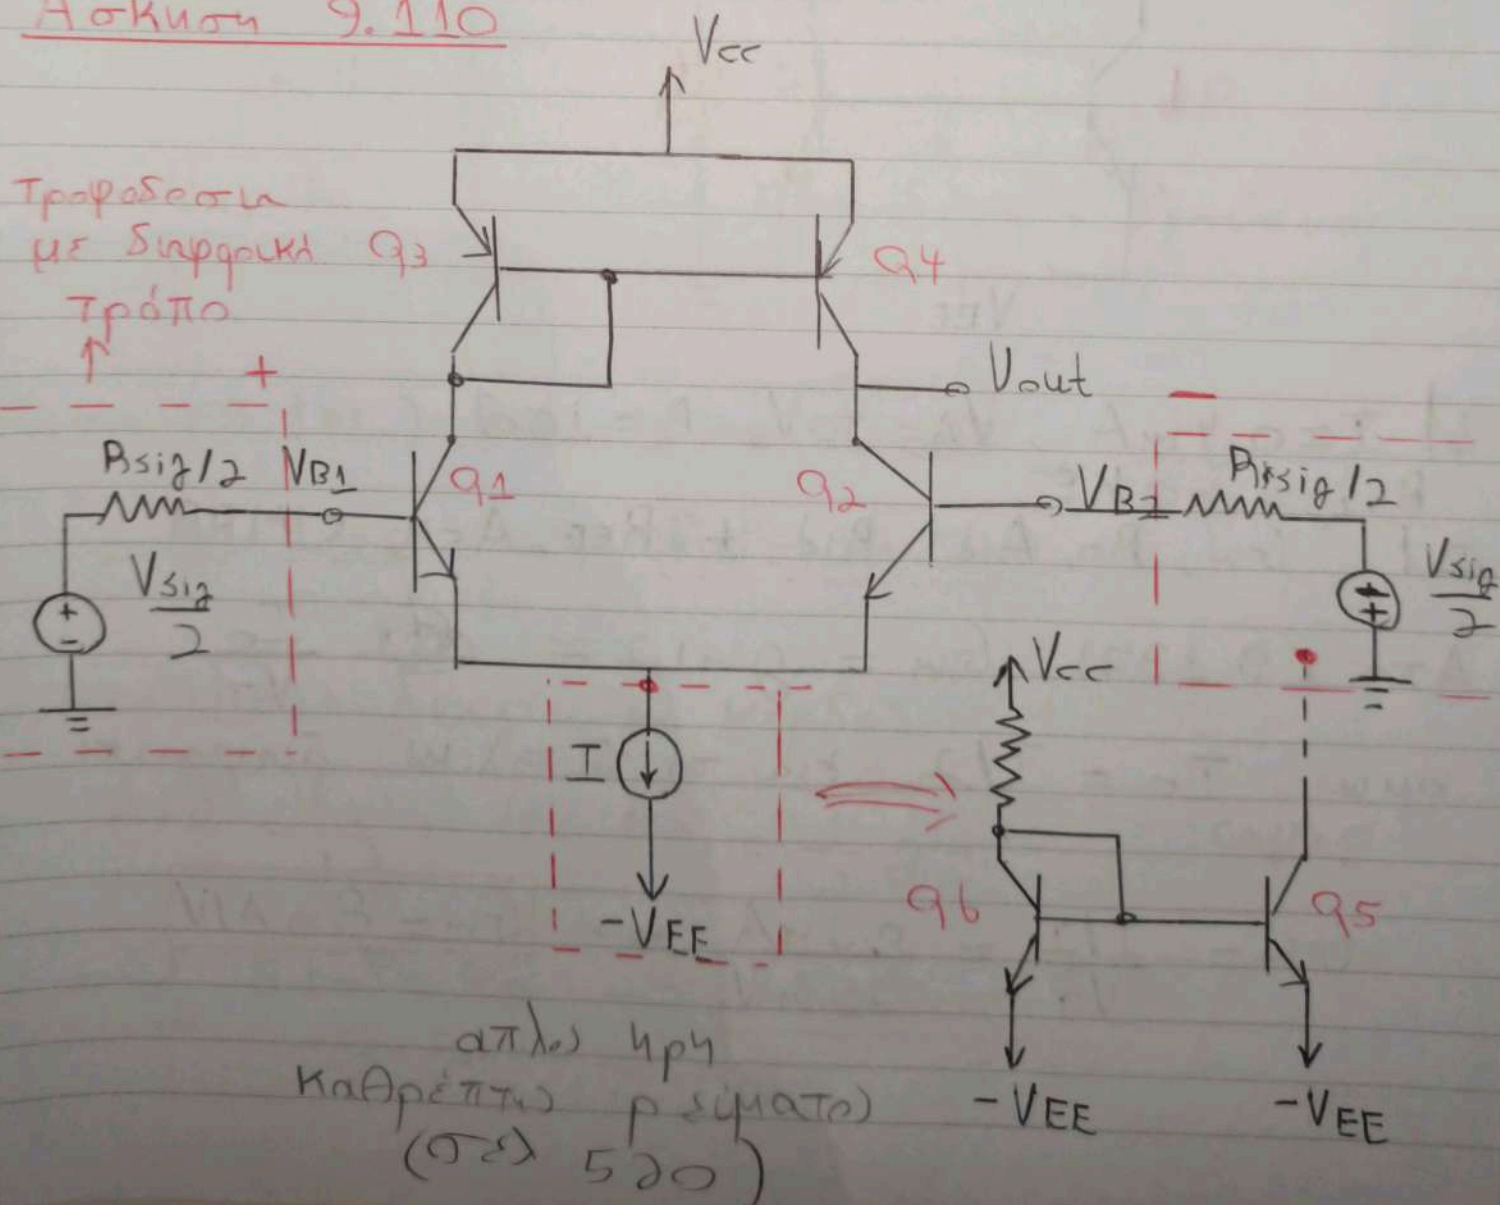 Άσκηση 9.110
Vcc
Τροφοδοσια
με διαφορικό
τρόπο
Q3
Q4
+
Vout
Rsig/2
VB1
Q1
Q2
VB2
Rsig/2
Vsig
2
+
-
Vsig
2
+
Vcc
I
-VEE
Q6
Q5
απλός npn
καθρέπτης ρεύματος
(σελ 520)
-VEE
-VEE